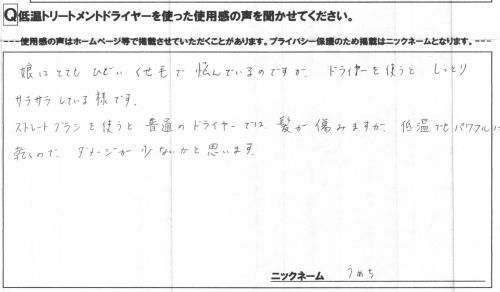 Q低温トリートメントドライヤーを使った使用感の声を聞かせてください。
使用感の声はホームページ等で掲載させていただくことがあります。プライバシー保護のため掲載はニックネームとなります。
娘はとても ひどい くせ毛で 悩んでいるのですが、ドライヤーを使うと、しっとり
サラサラしている様です。
ストレートブラシを使うと 普通のドライヤーでは、髪が傷みますが、低温でもパワフルに
乾くので、ダメージが少ないかと思います。
ニックネーム うめち